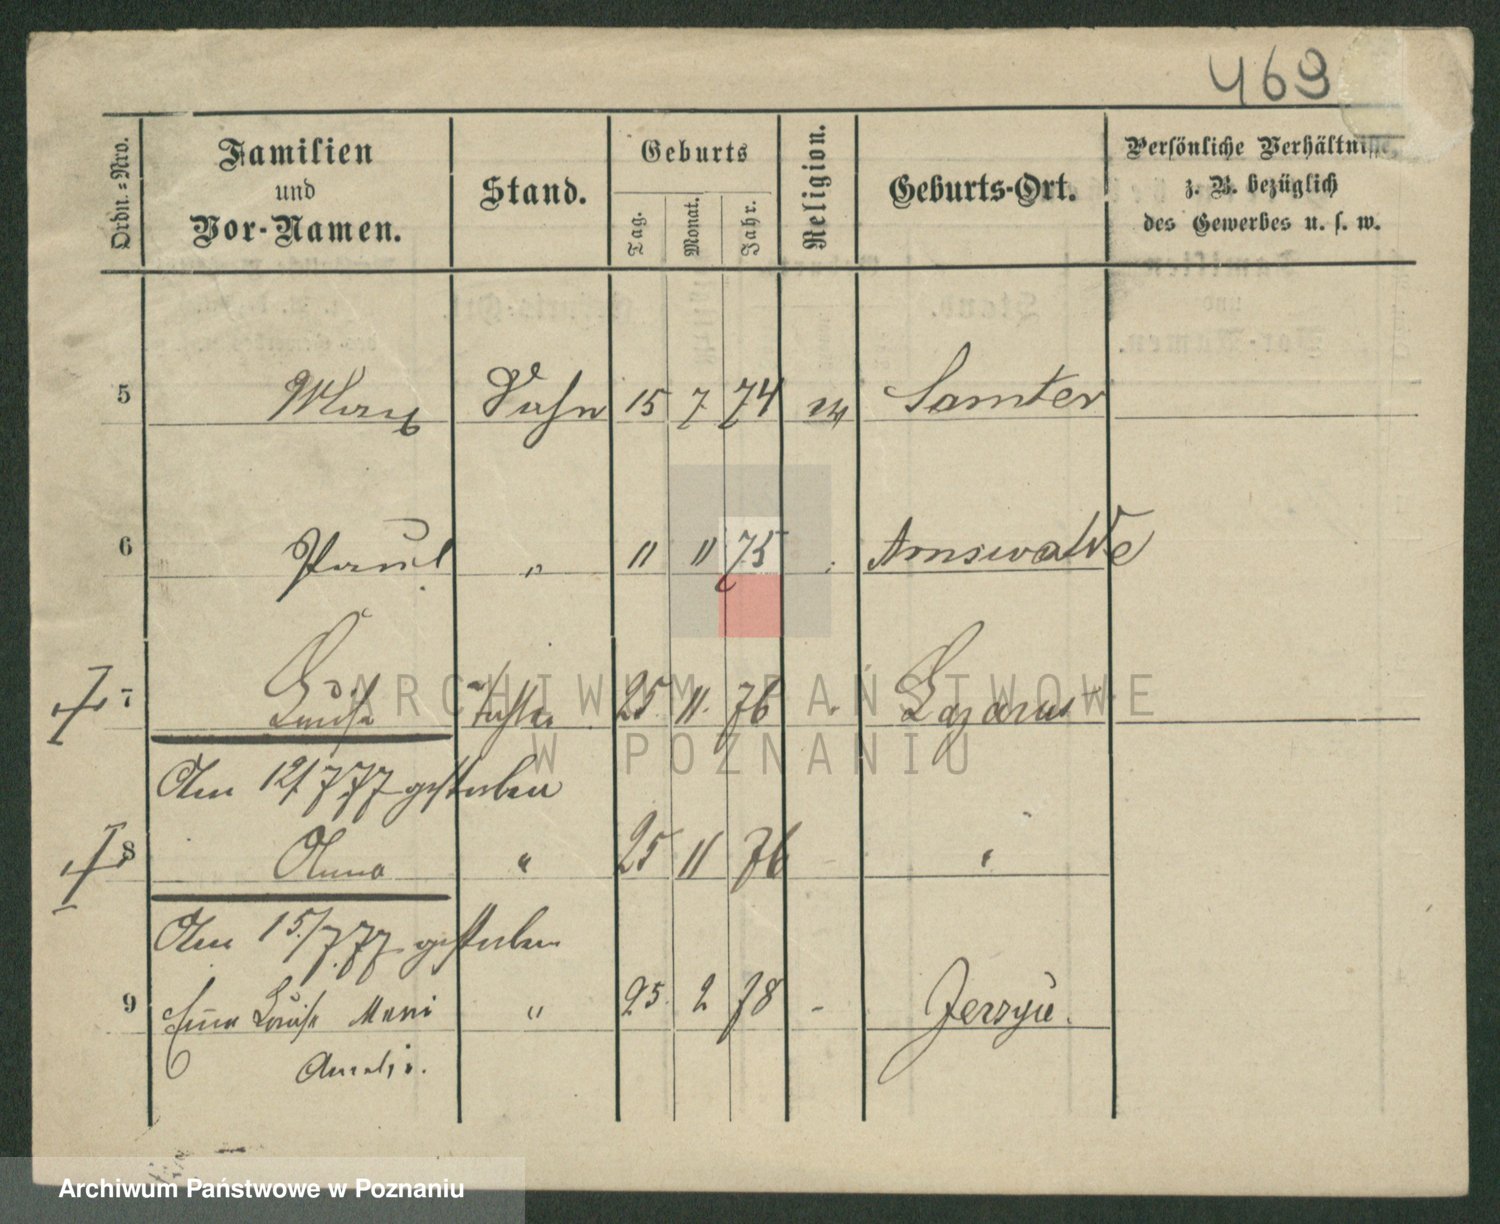 469
Ordn.=Nro.
Familien
und
Vor-Namen.
Stand.
Geburts
Tag.
Monat.
Jahr.
Religion.
Geburts-Ort.
Persönliche Verhältnisse,
z. B. bezüglich
des Gewerbes u. s. w.
5 Max Sohn 15 7 74 Samter
6 Paul " 11 11 75 Arnswalde
7 Luise Tochter 25. 11. 76 Lazarus
Am 12/7 77 gestorben
8 Anna " 25 11 76 "
Am 15./7. 77 gestorben
9 Luise " 25. 2 78 - Jerzyce.
Amalie.
ARCHIWUM PAŃSTWOWE
W POZNANIU
Archiwum Państwowe w Poznaniu